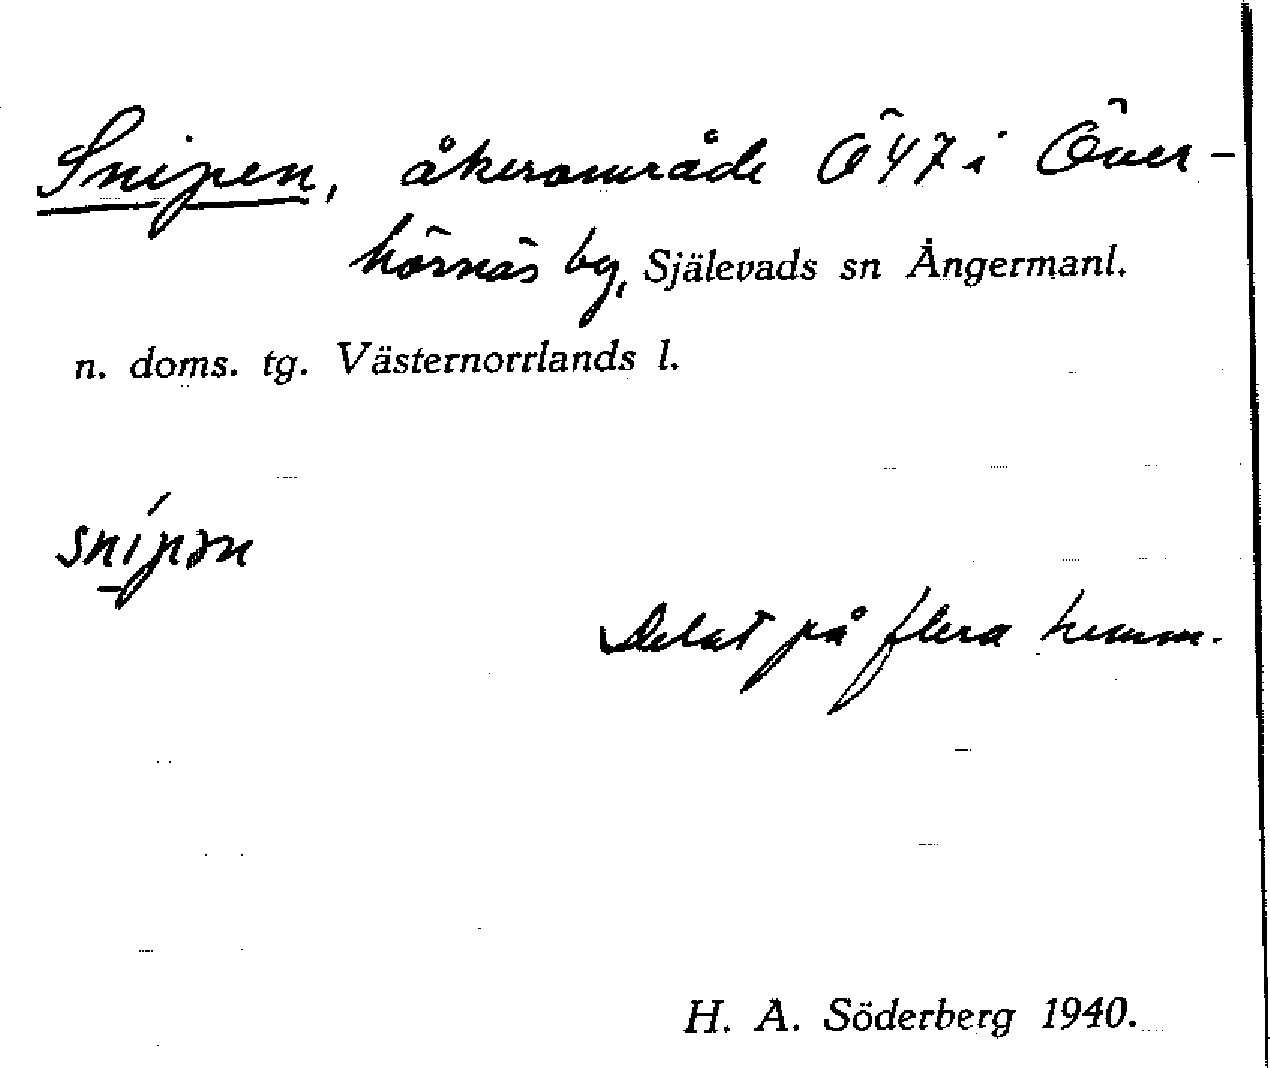 Snipen, åkerområde Ö 47 i Över-
hörnäs by, Själevads sn Ångermanl.
n. doms. tg. Västernorrlands l.
snípən
Delat på flera hemm.
H. A. Söderberg 1940.